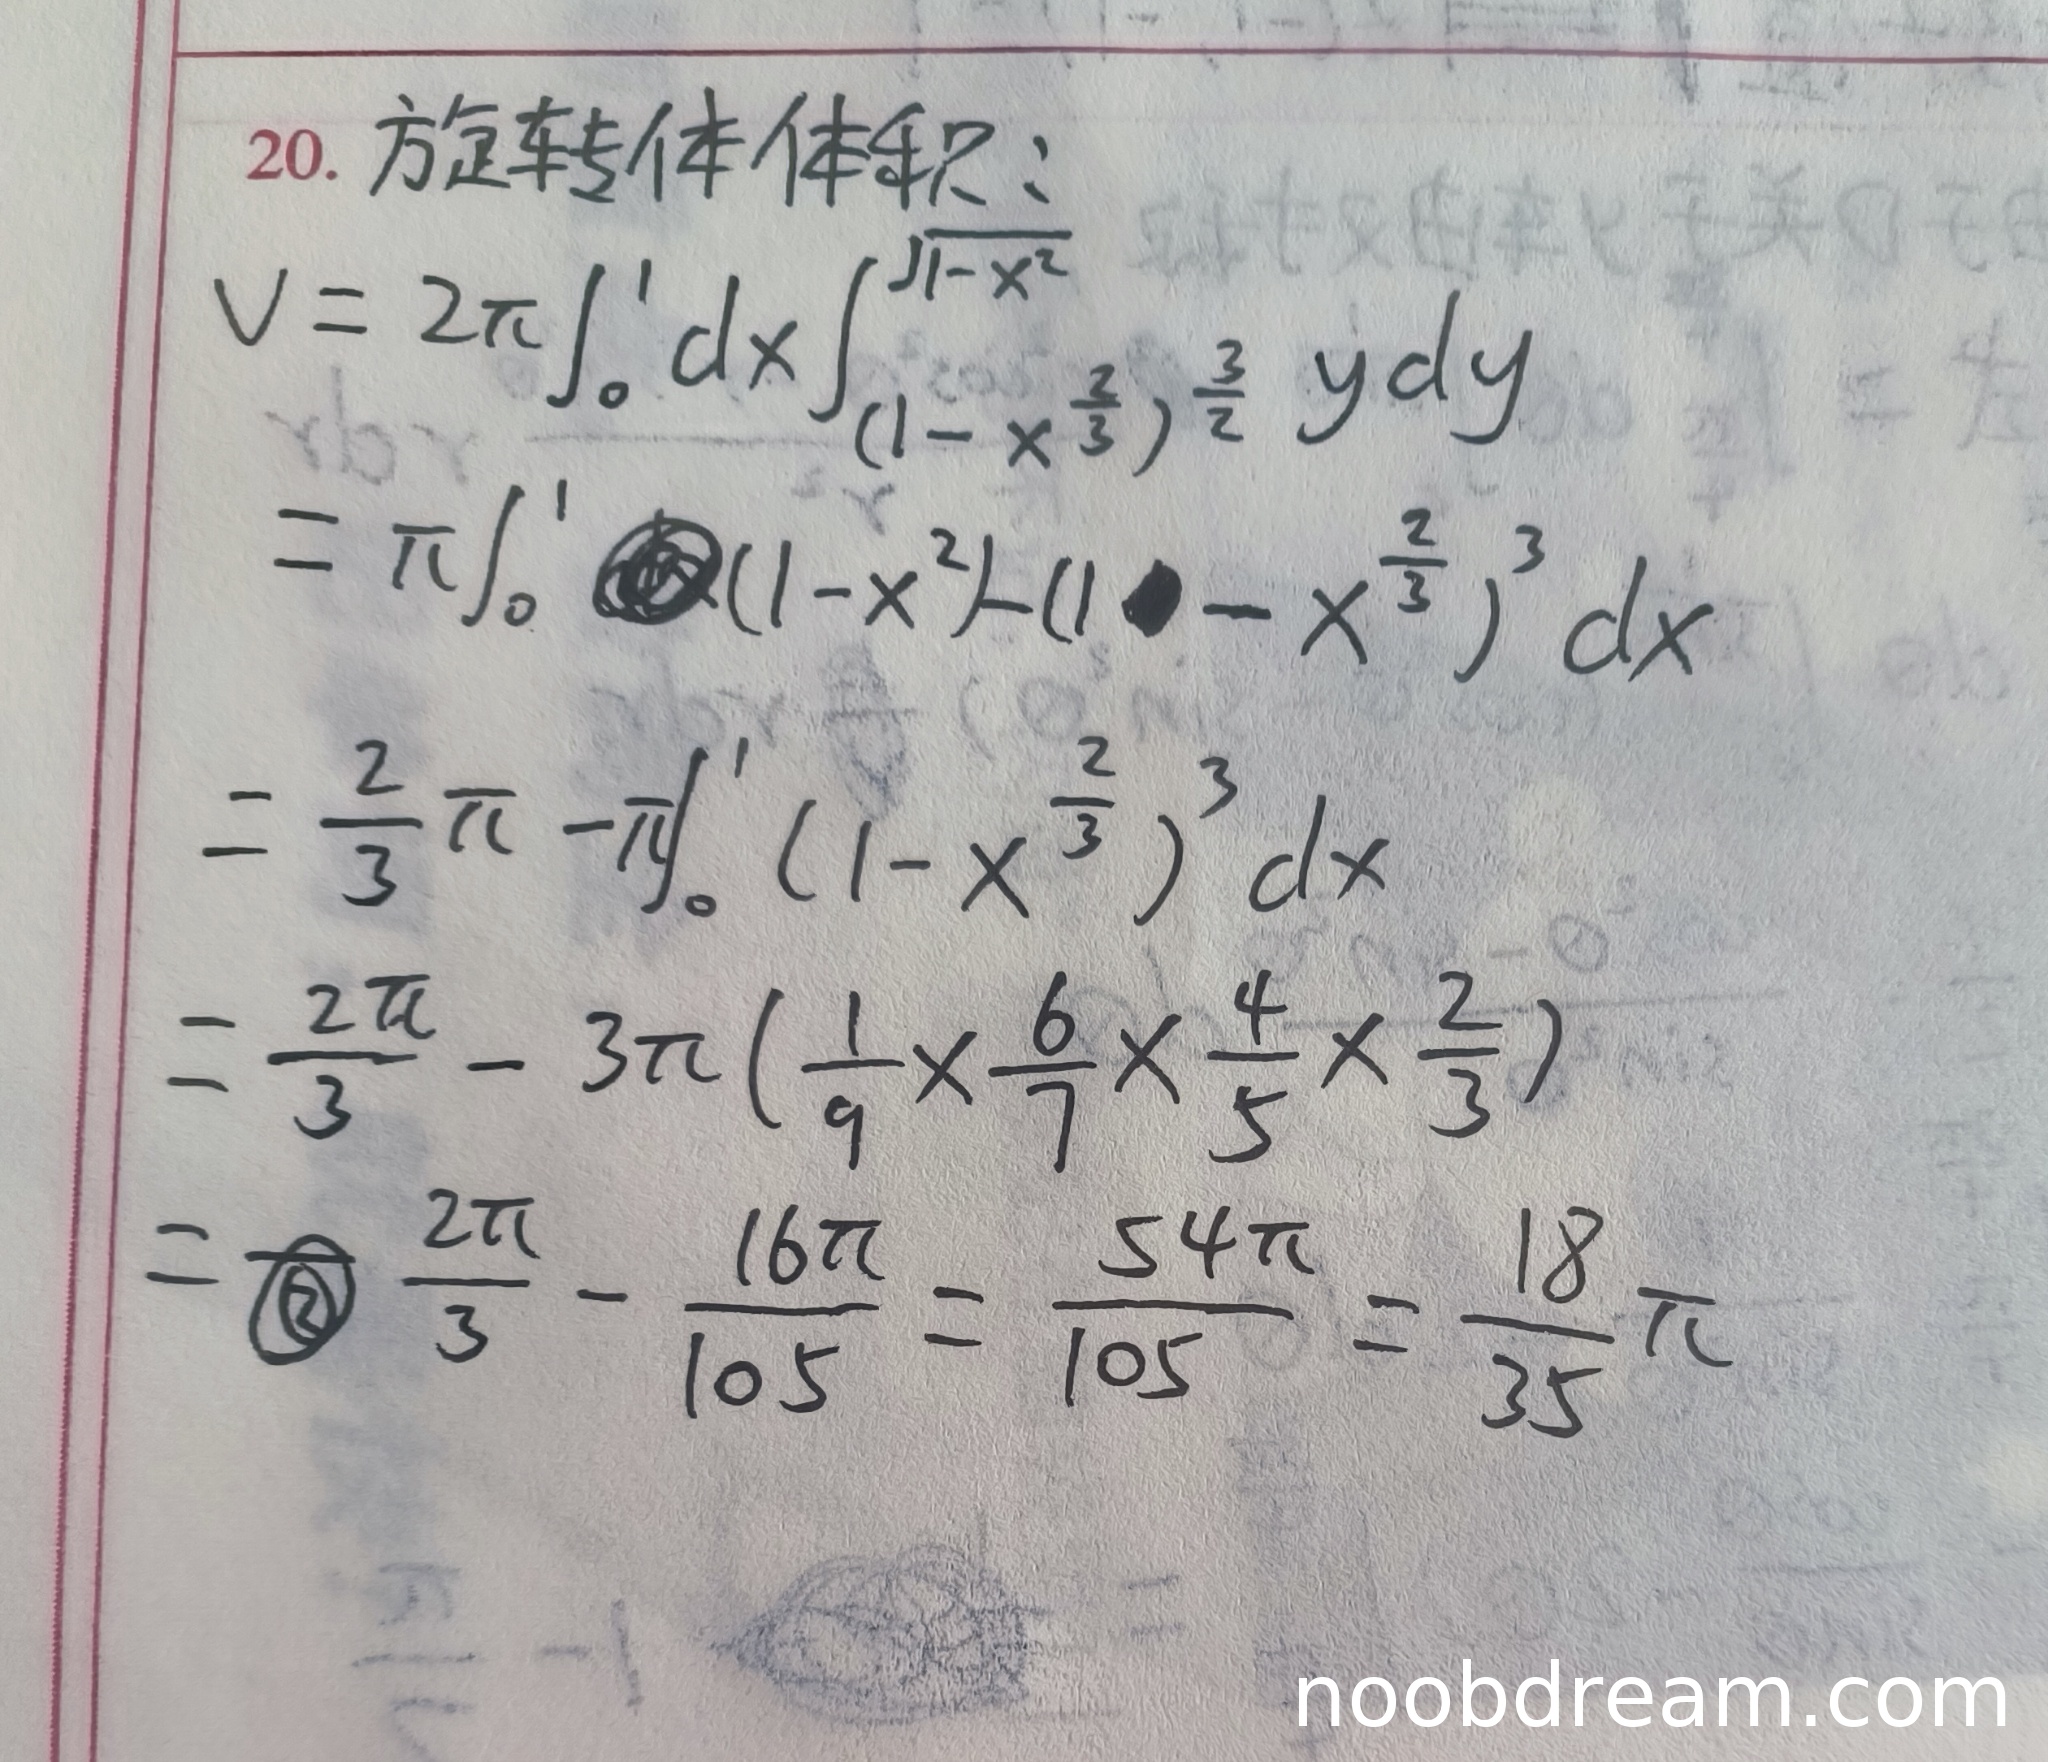 20. 旋转体体积：
V = 2π∫₀¹ dx ∫_{(1-x^{2/3})^{3/2}}^{√(1-x²)} y dy
= π∫₀¹ (1-x²)-(1-x^{2/3})³ dx
= 2/3 π - π∫₀¹ (1-x^{2/3})³ dx
= 2π/3 - 3π(1/9 × 6/7 × 4/5 × 2/3)
= 2π/3 - 16π/105 = 54π/105 = 18/35 π
noobdream.com